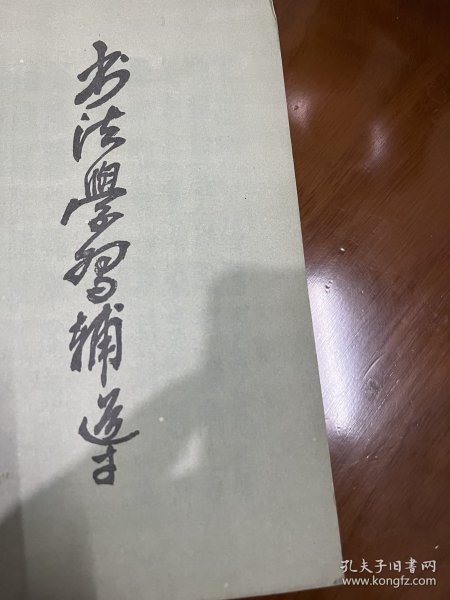 书法學習輔導
孔夫子旧书网
www.kongfz.com